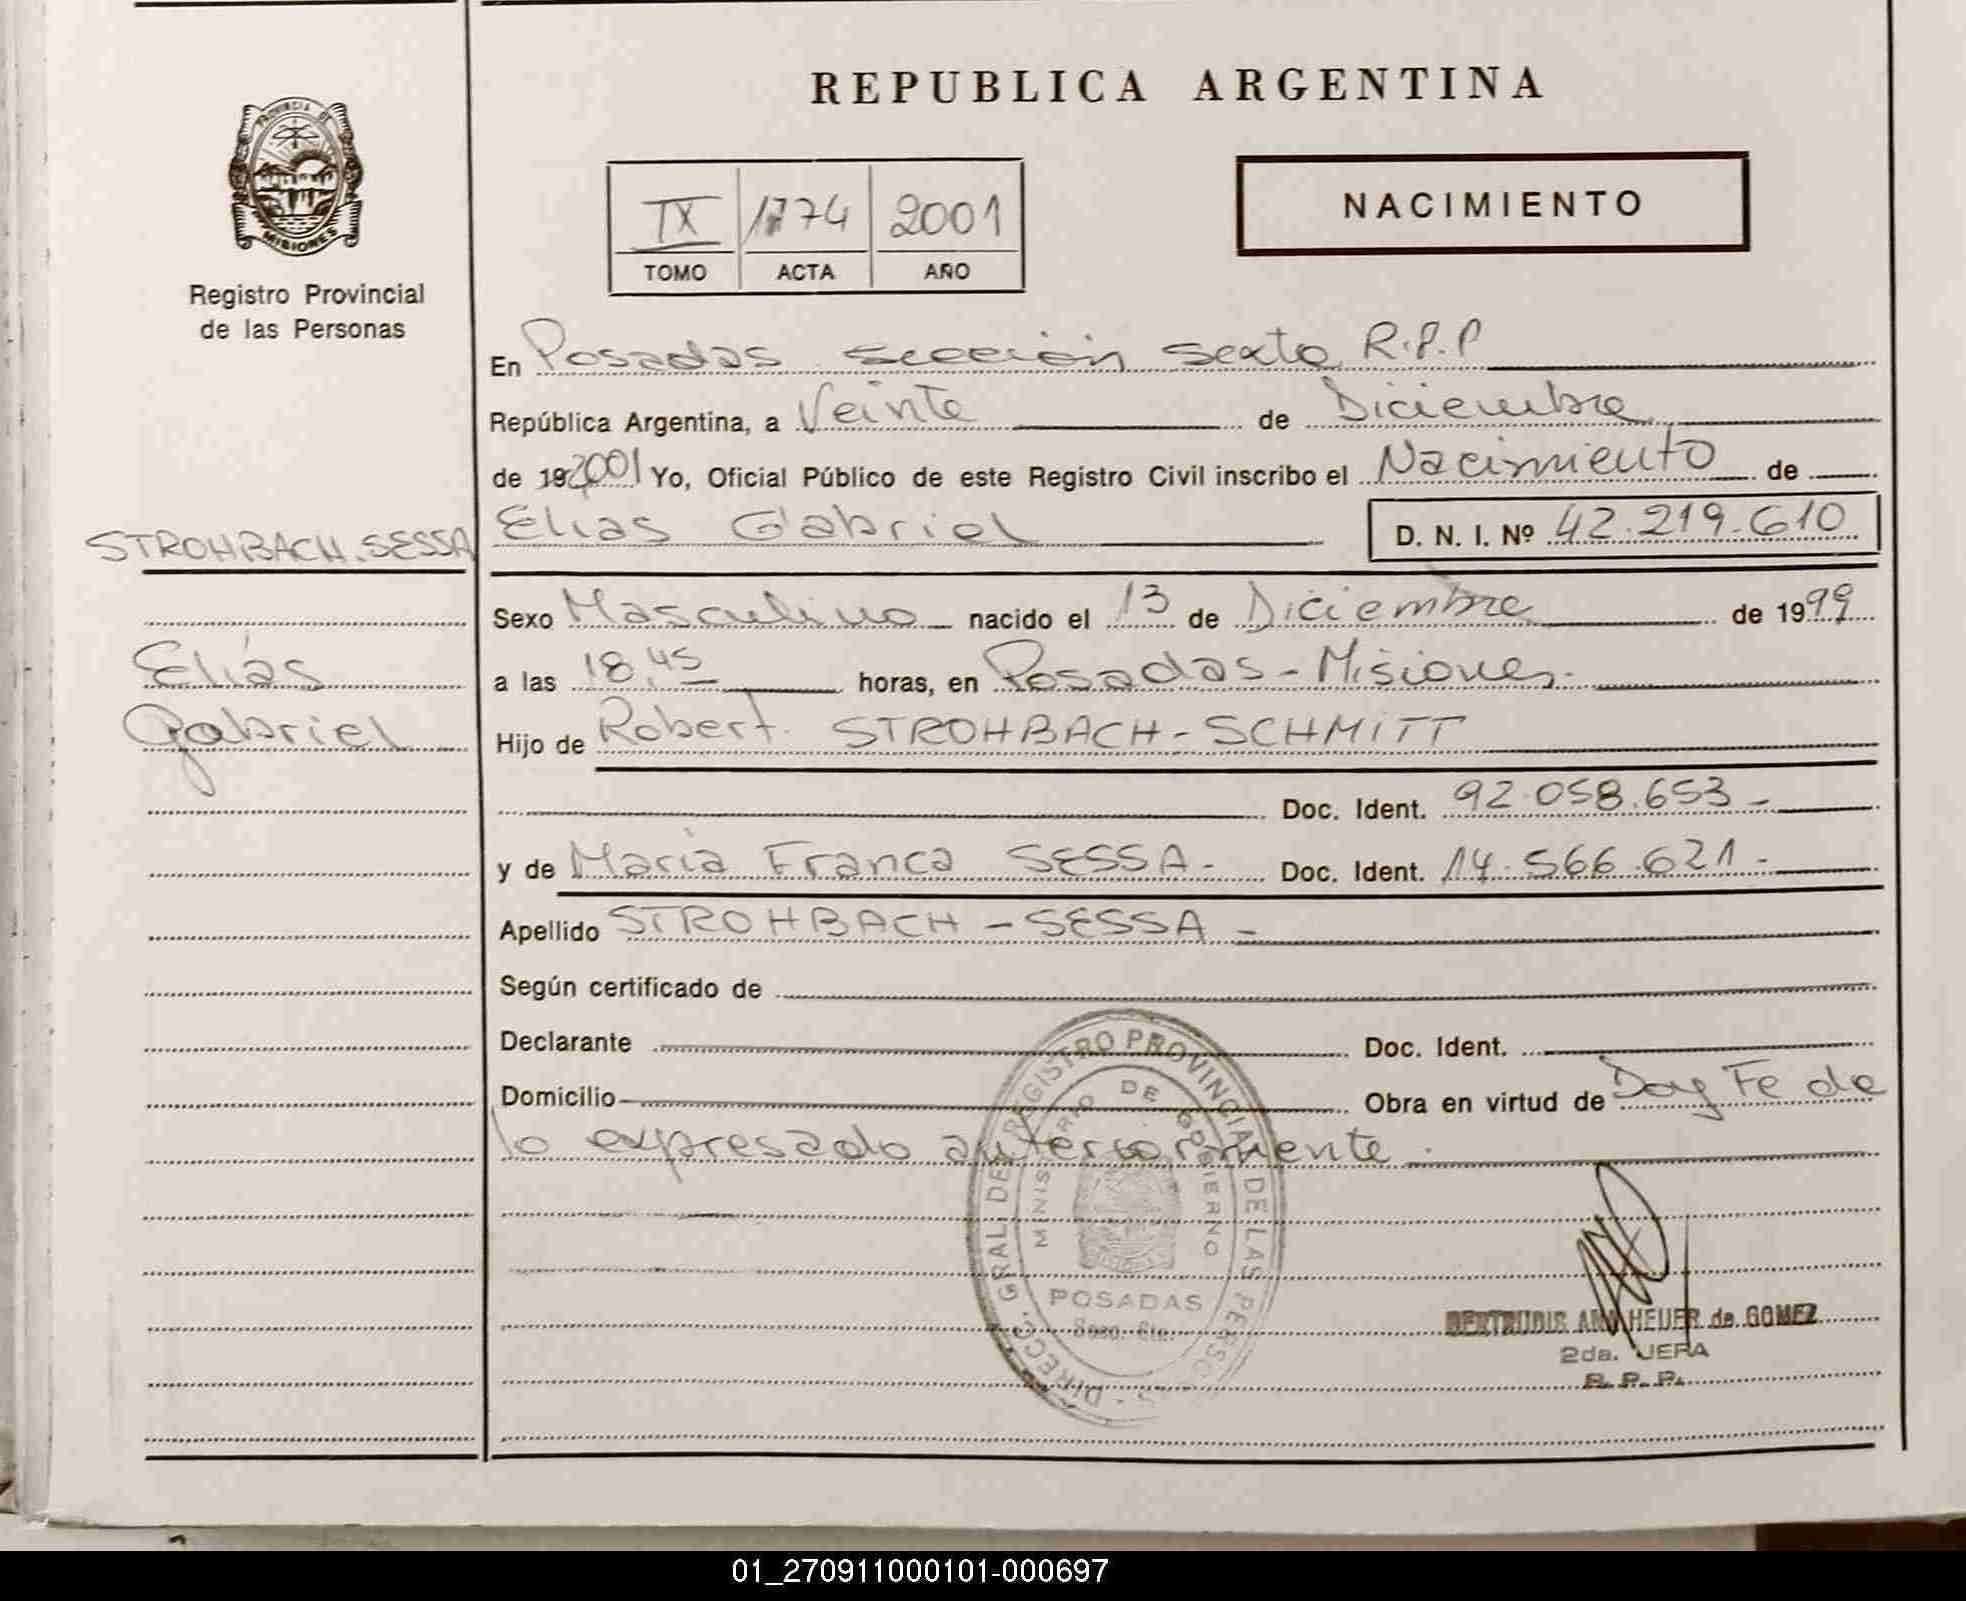 REPUBLICA ARGENTINA
PROVINCIA DE
MISIONES
Registro Provincial
de las Personas
IX 1774 2001
TOMO ACTA AÑO
NACIMIENTO
En Posadas sección sexta R.P.P
República Argentina, a Veinte de Diciembre
de 192001 Yo, Oficial Público de este Registro Civil inscribo el Nacimiento de
STROHBACH.SESSA
Elias Gabriel D. N. I. Nº 42.219.610
Sexo Masculino nacido el 13 de Diciembre de 1999
Elías
a las 18,45 horas, en Posadas - Misiones.
Gabriel
Hijo de Robert. STROHBACH - SCHMITT
Doc. Ident. 92.058.653 -
y de María Franca SESSA - Doc. Ident. 14.566.621 -
Apellido STROHBACH - SESSA -
Según certificado de
Declarante Doc. Ident.
Domicilio Obra en virtud de Doy Fe de
lo expresado anteriormente.
DIREC. GRAL. DEL REGISTRO PROVINCIAL DE LAS PERSO
MINISTERIO DE GOBIERNO
POSADAS
GERTRUDIS ANA HEUER de GOMEZ
2da. JEFA
R. P. P.
01_270911000101-000697